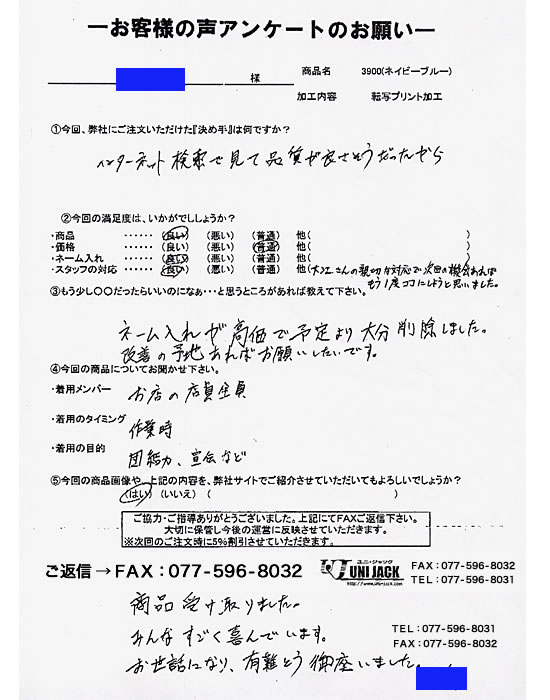 ーお客様の声アンケートのお願いー
様
商品名 3900(ネイビーブルー)
加工内容 転写プリント加工
①今回、弊社にご注文いただけた『決め手』は何ですか?
インターネット検索で見て品質が良さそうだったから
②今回の満足度は、いかがでしょうか?
・商品 ‥‥‥ (良い) (悪い) (普通) 他( )
・価格 ‥‥‥ (良い) (悪い) (普通) 他( )
・ネーム入れ ‥‥‥ (良い) (悪い) (普通) 他( )
・スタッフの対応 ‥‥‥ (良い) (悪い) (普通) 他(大江さんの親切な対応で次回の機会あれば
もう1度ココにしようと思いました。
③もう少し〇〇だったらいいのになぁ・・・と思うところがあれば教えて下さい。
ネーム入れが高価で予定より大分削除しました。
改善の予地あればお願いしたいです。
④今回の商品についてお聞かせ下さい。
・着用メンバー お店の店員全員
・着用のタイミング 作業時
・着用の目的 団結力、宣伝など
⑤今回の商品画像や、上記の内容を、弊社サイトでご紹介させていただいてもよろしいでしょうか?
(はい) (いいえ) ( )
ご協力・ご指導ありがとうございました。上記にてFAXご返信下さい。
大切に保管し今後の運営に反映させていただきます。
※次回のご注文時に5%割引させていただきます。
ご返信→FAX:077-596-8032
ユニ・ジャック
UNI JACK
http://www.uni-jack.com
FAX:077-596-8032
TEL:077-596-8031
商品受け取りました。
みんなすごく喜んでいます。
お世話になり、有難とう御座いました。
TEL:077-596-8031
FAX:077-596-8032